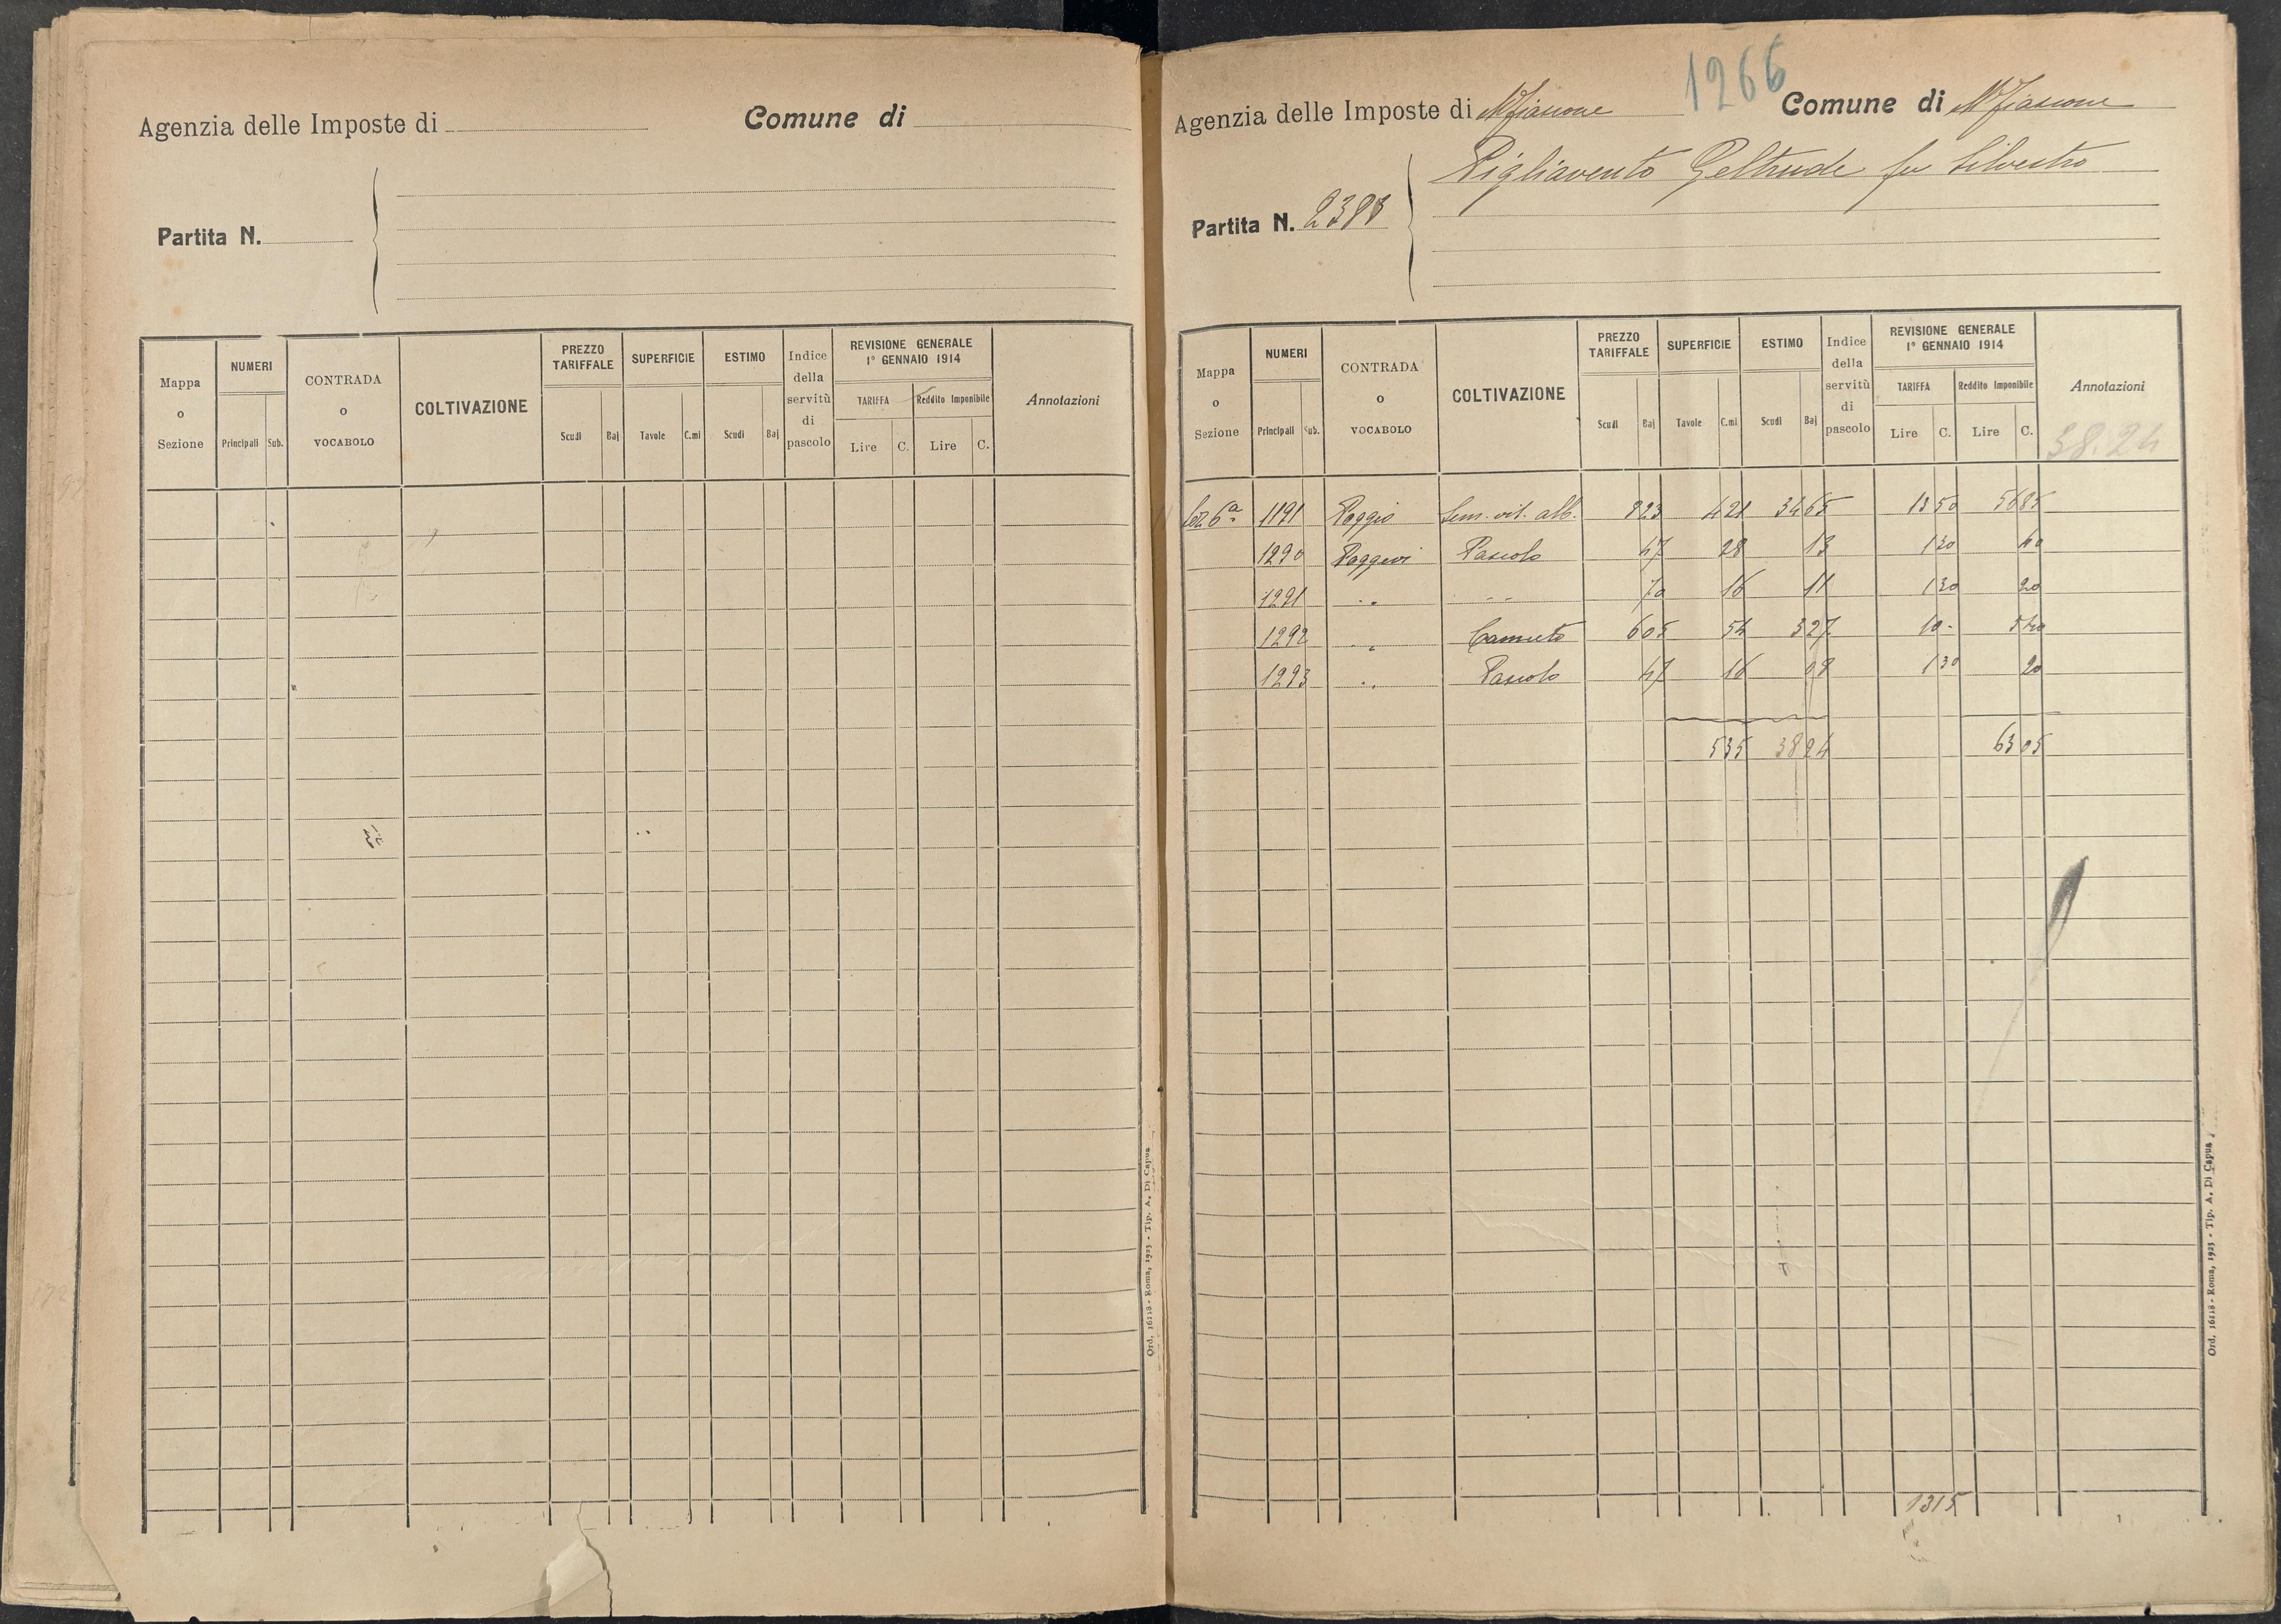 Agenzia delle Imposte di
Comune di
Partita N.
Mappa o Sezione
NUMERI
Principali Sub.
CONTRADA o VOCABOLO
COLTIVAZIONE
PREZZO TARIFFALE
Scudi Baj
SUPERFICIE
Tavole C.mi
ESTIMO
Scudi Baj
Indice della servitù di pascolo
REVISIONE GENERALE
1° GENNAIO 1914
TARIFFA Reddito Imponibile
Lire C. Lire C.
Annotazioni
Ord. 16118 - Roma, 1923 - Tip. A. Di Capua
1266
Agenzia delle Imposte di Mfiascone Comune di Mfiascone
Pigliavento Geltrude fu Silvestro
Partita N. 2388
Mappa o Sezione
NUMERI
Principali Sub.
CONTRADA o VOCABOLO
COLTIVAZIONE
PREZZO TARIFFALE
Scudi Baj
SUPERFICIE
Tavole C.mi
ESTIMO
Scudi Baj
Indice della servitù di pascolo
REVISIONE GENERALE
1° GENNAIO 1914
TARIFFA Reddito Imponibile
Lire C. Lire C.
Annotazioni
38.24
Sez. 6ª 1191 Poggio Sem. vit. alb. 823 421 3465 13 50 56 85
1290 Poggeri Pascolo 47 28 13 1 30 40
1291 " " 70 16 11 1 30 20
1292 " Canneto 605 54 327 10 - 5 40
1293 " Pascolo 47 16 08 1 30 20
535 38 24 63 05
1315
Ord. 16118 - Roma, 1923 - Tip. A. Di Capua